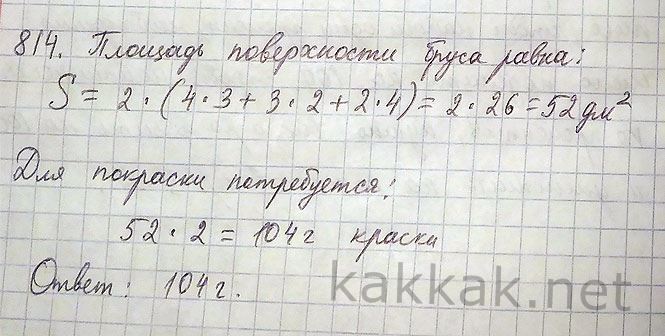 814. Площадь поверхности бруса равна:
S = 2 · (4 · 3 + 3 · 2 + 2 · 4) = 2 · 26 = 52 дм²
Для покраски потребуется:
52 · 2 = 104 г краски
Ответ: 104 г.
kakkak.net